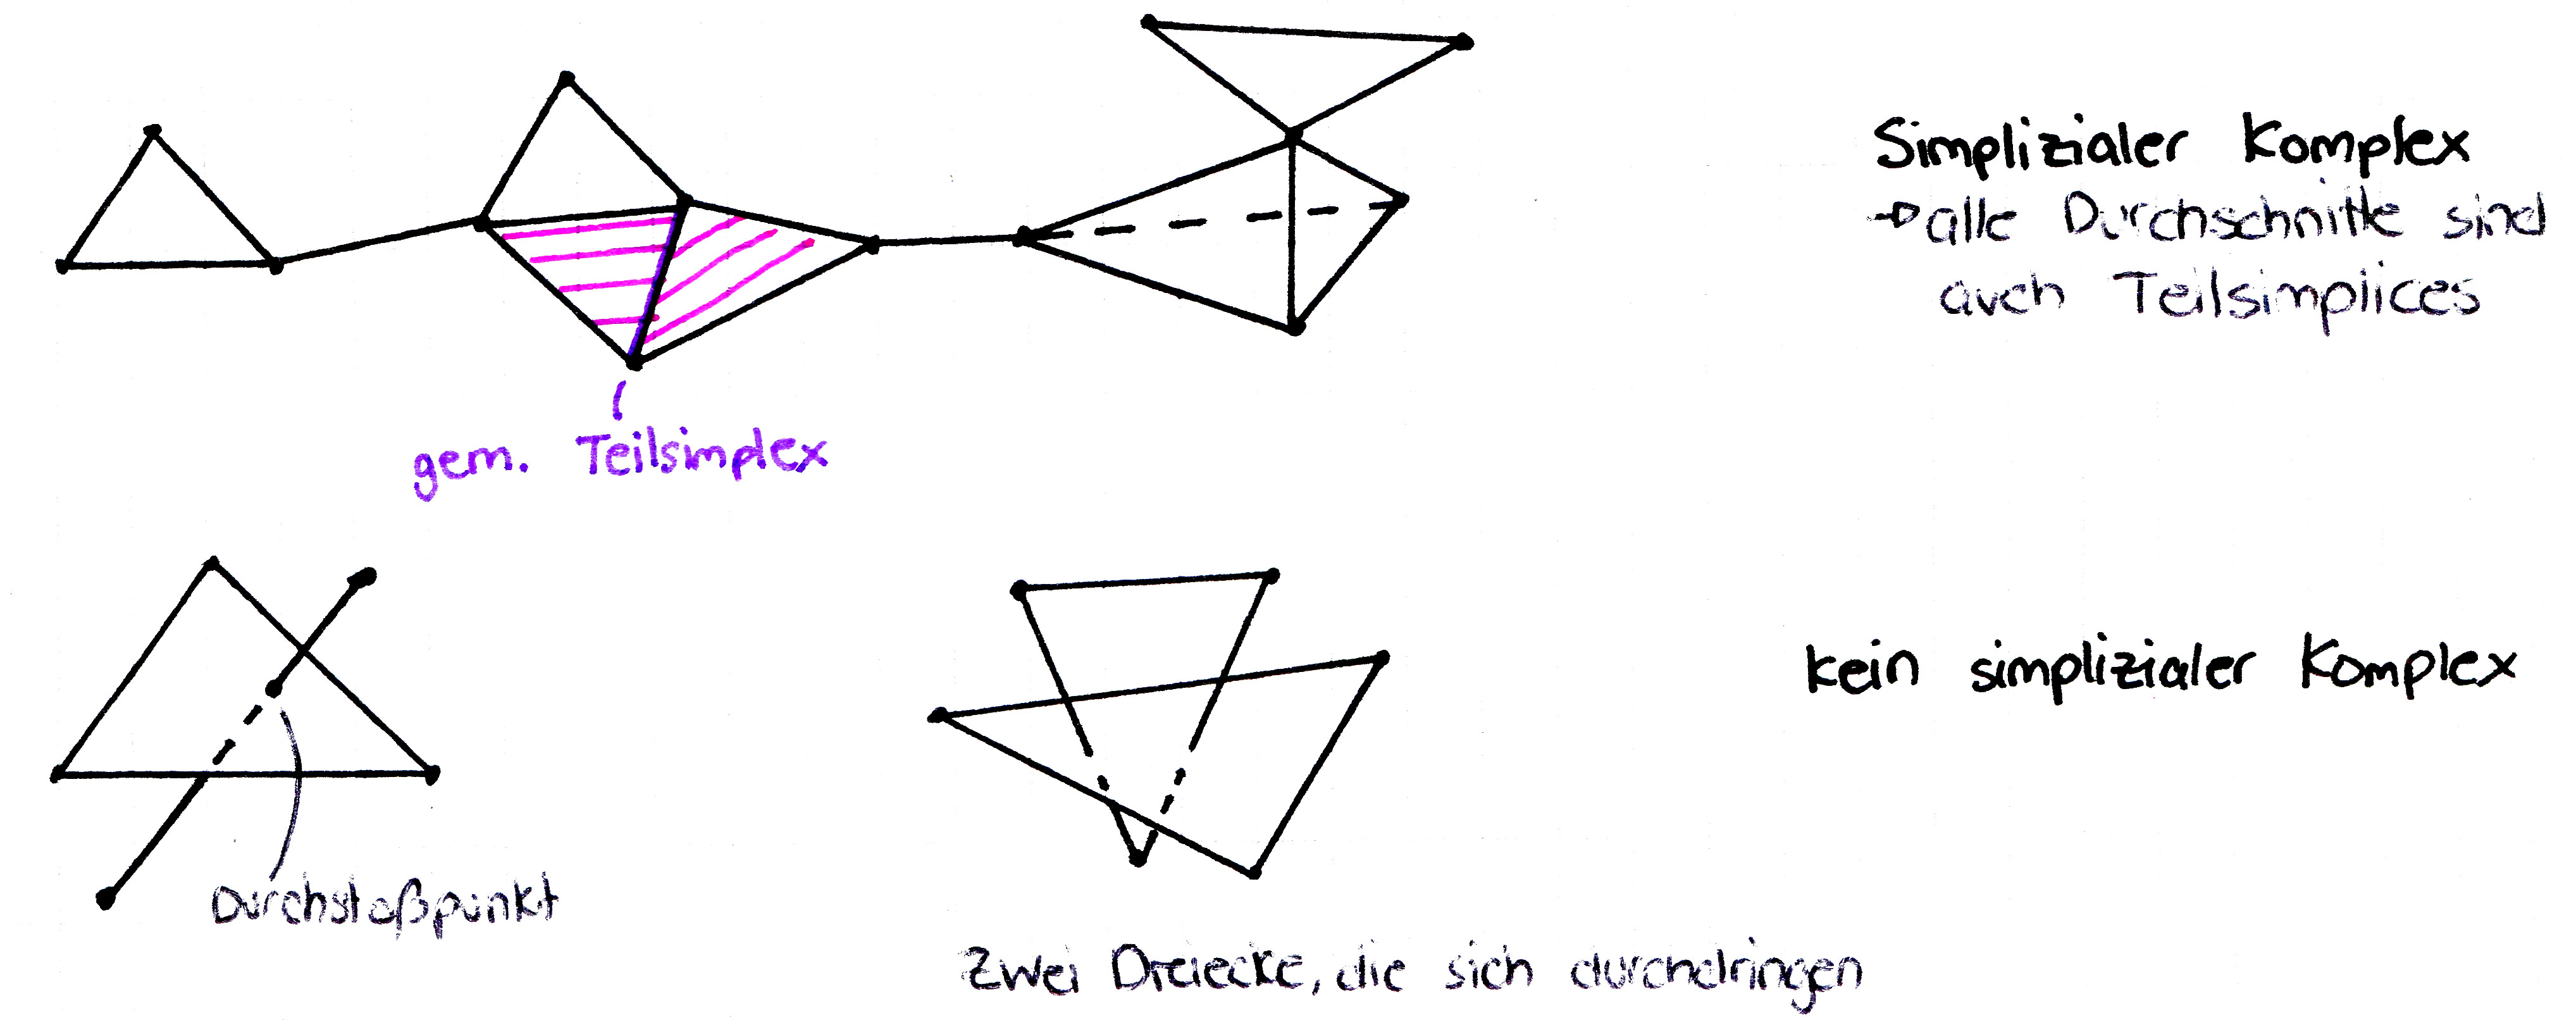 Simplizialer Komplex
→ alle Durchschnitte sind
auch Teilsimplices
gem. Teilsimplex
kein simplizialer Komplex
Durchstoßpunkt
Zwei Dreiecke, die sich durchdringen